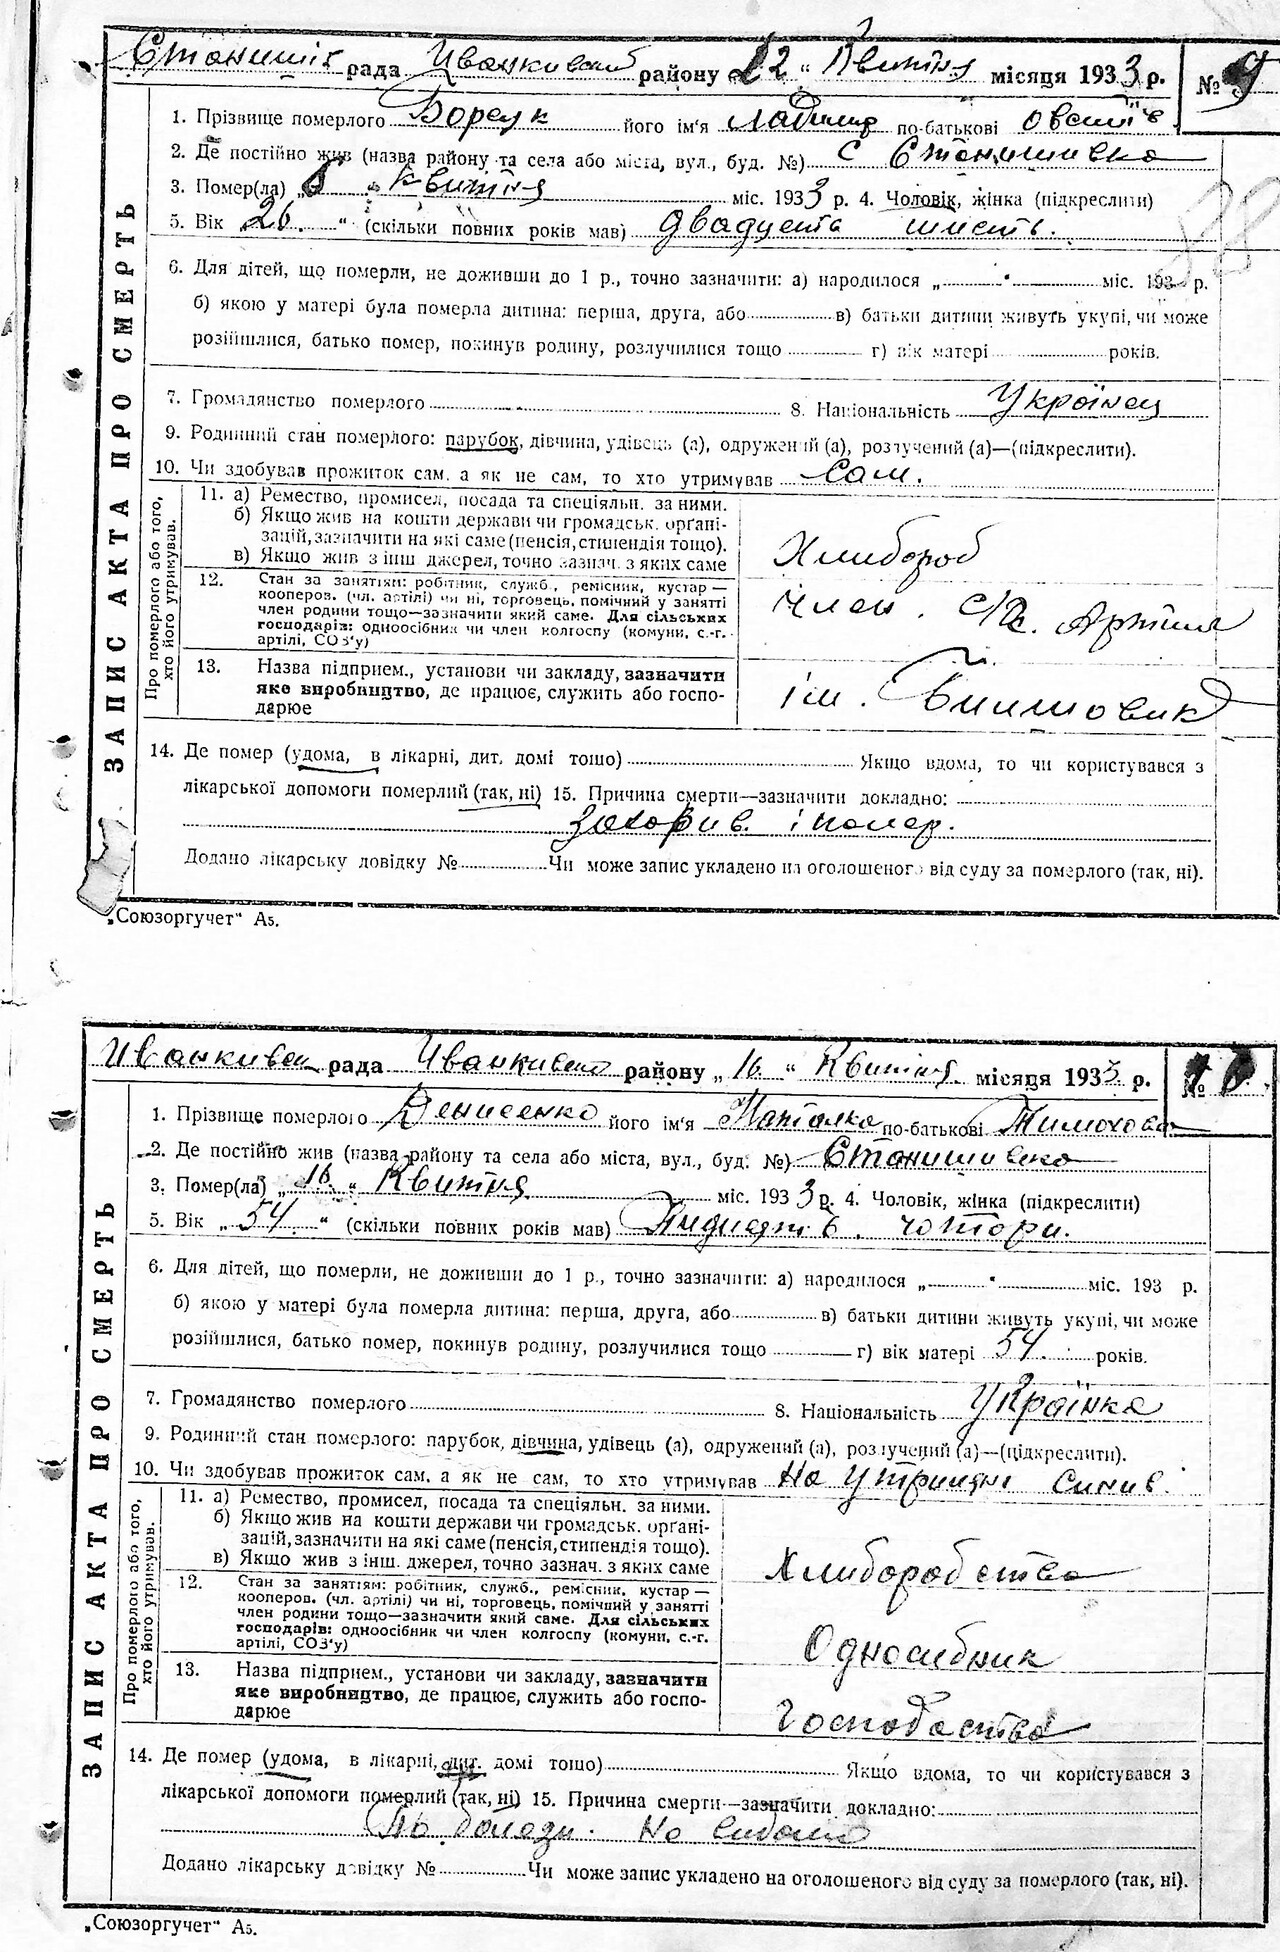 Станишів рада Иванкивский району „22“ Квитня місяця 1933 р. № 9
1. Прізвище померлого Борсук його ім'я по-батькові
2. Де постійно жив (назва району та села або міста, вул., буд. №) с Станишивка
3. Помер(ла) „6“ Квитня міс. 1933 р. 4. Чоловік, жінка (підкреслити)
5. Вік 26. “ (скільки повних років мав) двадцять шисть.
88
6. Для дітей, що померли, не доживши до 1 р., точно зазначити: а) народилося „ “ міс. 193 р.
б) якою у матері була померла дитина: перша, друга, або в) батьки дитини живуть укупі, чи може
розійшлися, батько помер, покинув родину, розлучилися тощо г) вік матері років.
7. Громадянство померлого 8. Національність Українец
9. Родинний стан померлого: парубок, дівчина, удівець (а), одружений (а), розлучений (а)—(підкреслити).
10. Чи здобував прожиток сам, а як не сам, то хто утримував Сам.
ЗАПИС АКТА ПРО СМЕРТЬ
Про померлого або того, хто його утримував.
11. а) Ремество, промисел, посада та спеціяльн. за ними.
б) Якщо жив на кошти держави чи громадськ. орґані-
зацій, зазначити на які саме (пенсія, стипендія тощо).
в) Якщо жив з інш джерел, точно зазнач. з яких саме
Хлибороб
12. Стан за занятіям: робітник, служб., ремісник, кустар—
кооперов. (чл. артілі) чи ні, торговець, помічний у занятті
член родини тощо—зазначити який саме. Для сільських
господарів: одноосібник чи член колгоспу (комуни, с.-г.
артілі, СОЗ'у)
член. Артили
13. Назва підприєм., установи чи закладу, зазначити
яке виробництво, де працює, служить або госпо-
дарює
ім. Билшовик
14. Де помер (удома, в лікарні, дит. домі тощо) Якщо вдома, то чи користувався з
лікарської допомоги померлий (так, ні) 15. Причина смерти—зазначити докладно:
Захорив. і помер.
Додано лікарську довідку № Чи може запис укладено на оголошеного від суду за померлого (так, ні).
„Союзоргучет“ А5.
Иванкивска рада Иванкивский району „16“ Квитня. місяця 1933 р. № 10
1. Прізвище померлого Денисенко його ім'я Наталка по-батькові Тимохова
2. Де постійно жив (назва району та села або міста, вул., буд. №) Станишивка
3. Помер(ла) „16.“ Квитня міс. 1933 р. 4. Чоловік, жінка (підкреслити)
5. Вік „54“ (скільки повних років мав) Пядисят. чотори.
6. Для дітей, що померли, не доживши до 1 р., точно зазначити: а) народилося „ “ міс. 193 р.
б) якою у матері була померла дитина: перша, друга, або в) батьки дитини живуть укупі, чи може
розійшлися, батько помер, покинув родину, розлучилися тощо г) вік матері 54. років.
7. Громадянство померлого 8. Національність Українка
9. Родинний стан померлого: парубок, дівчина, удівець (а), одружений (а), розлучений (а)—(підкреслити).
10. Чи здобував прожиток сам, а як не сам, то хто утримував На утриманні Синив.
ЗАПИС АКТА ПРО СМЕРТЬ
Про померлого або того, хто його утримував.
11. а) Ремество, промисел, посада та спеціяльн. за ними.
б) Якщо жив на кошти держави чи громадськ. орґані-
зацій, зазначити на які саме (пенсія, стипендія тощо).
в) Якщо жив з інш. джерел, точно зазнач. з яких саме
Хлиборобство
12. Стан за занятіям: робітник, служб., ремісник, кустар—
кооперов. (чл. артілі) чи ні, торговець, помічний у занятті
член родини тощо—зазначити який саме. Для сільських
господарів: одноосібник чи член колгоспу (комуни, с.-г.
артілі, СОЗ'у)
Односибник
13. Назва підприєм., установи чи закладу, зазначити
яке виробництво, де працює, служить або госпо-
дарює
Господаства
14. Де помер (удома, в лікарні, дит. домі тощо) Якщо вдома, то чи користувався з
лікарської допомоги померлий (так, ні) 15. Причина смерти—зазначити докладно:
болезн. Не видомо
Додано лікарську довідку № Чи може запис укладено на оголошеного від суду за померлого (так, ні).
„Союзоргучет“ А5.